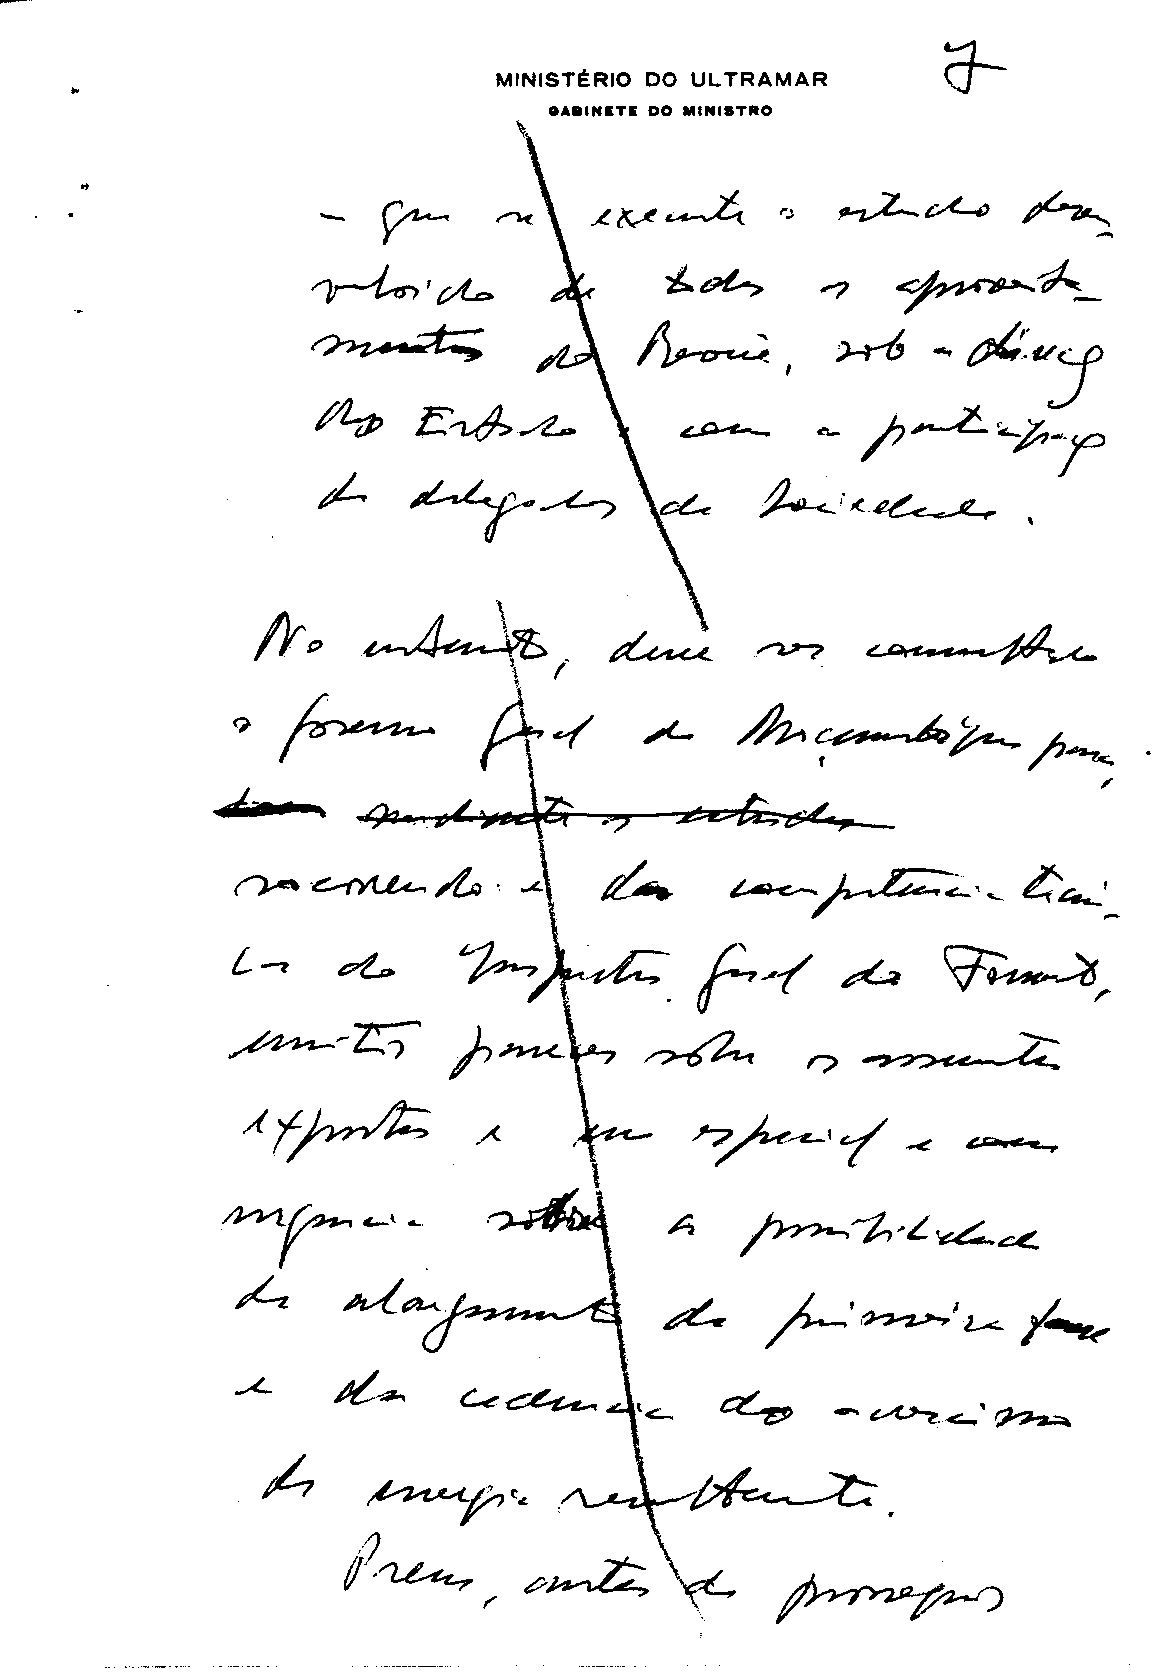 7
MINISTÉRIO DO ULTRAMAR
GABINETE DO MINISTRO
- que se execute o estudo desen-
volvido de todos os aproveita-
mentos do Revuè, sob a direcção
do Estado e com a participação
de delegados da Sociedade.
No entanto, deve ser consultado
o governo geral de Moçambique para,
mediante os estudos
socorrendo-se da competência técni-
ca do Inspector Geral do Fomento,
emitir parecer sobre os assuntos
expostos e em especial e com
urgência sobre a possibilidade
de alargamento da primeira fase
e da cadência do acréscimo
de energia resultante.
Penso, antes de prosseguir